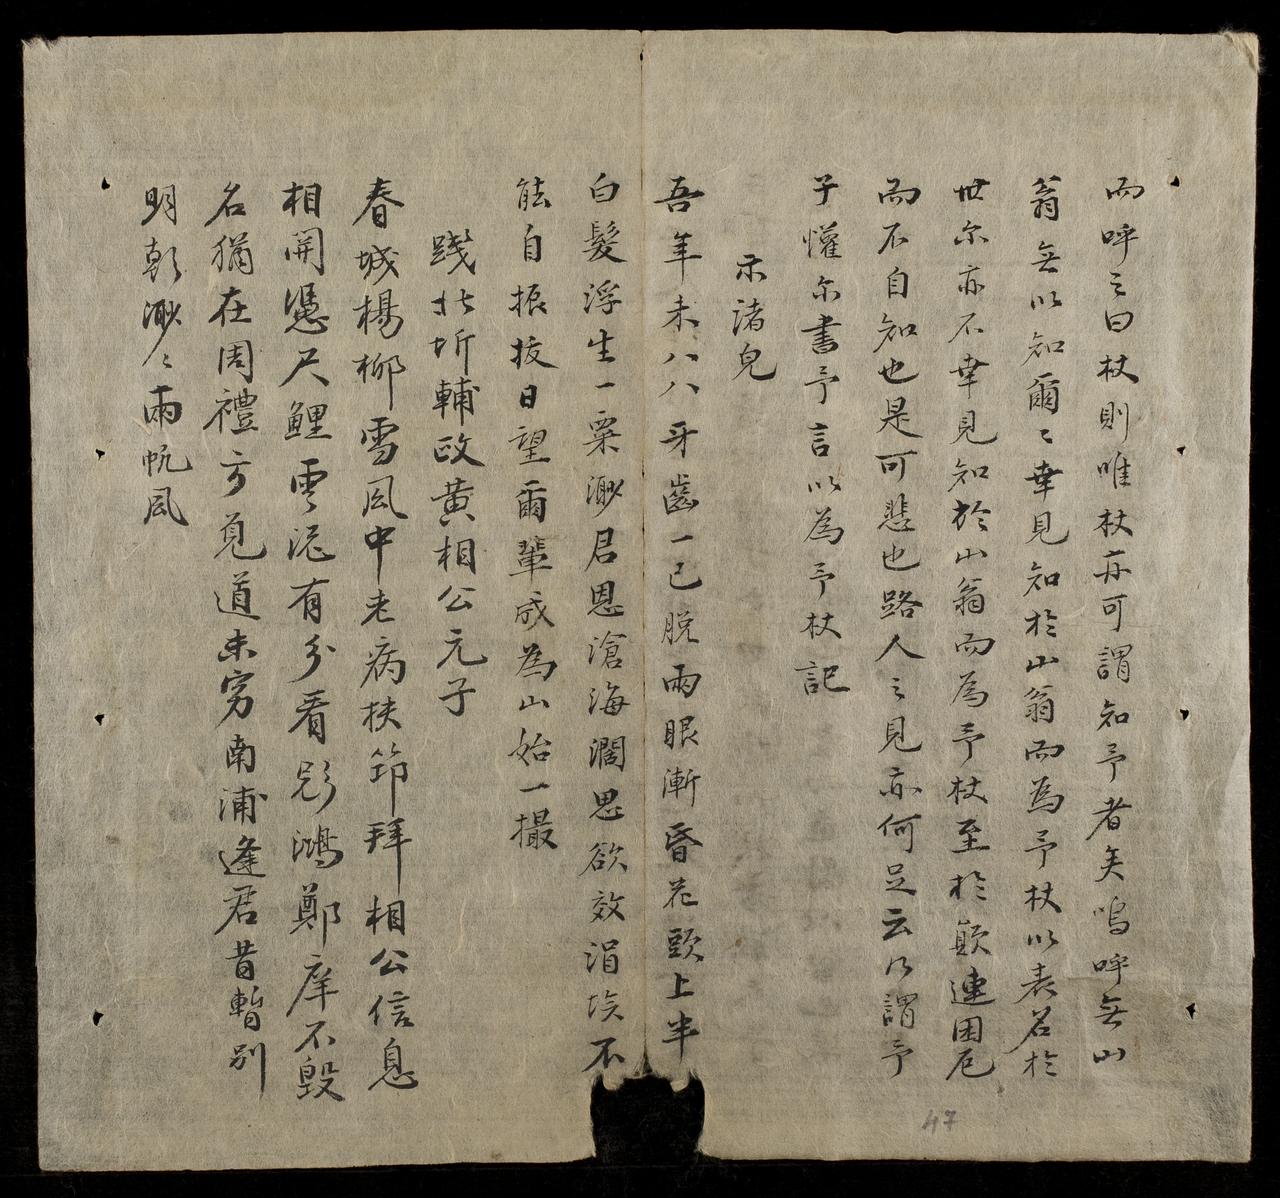 而呼之曰杖則唯杖亦可謂知予者矣嗚呼無山
翁無以知爾〻幸見知於山翁而為予杖以表名於
世尔亦不幸見知於山翁而為予杖至於顛連困厄
而不自知也是可悲也路人之見亦何足云乃謂予
子懽尔書予言以為予杖記
示諸兒
吾年未八八牙齒一已脫兩眼漸昏花頭上半
白髮浮生一粟渺君恩滄海濶思欲效涓埃不
能自振拔日望爾輩成為山始一撮
踐北圻輔政黃相公元子
春城楊柳雪風中老病扶筇拜相公信息
相開憑尺鯉雲泥有分看影鴻鄭庠不毀
名猶在周禮方見道未窮南浦逢君昔暫別
明朝渺〻雨帆風
47